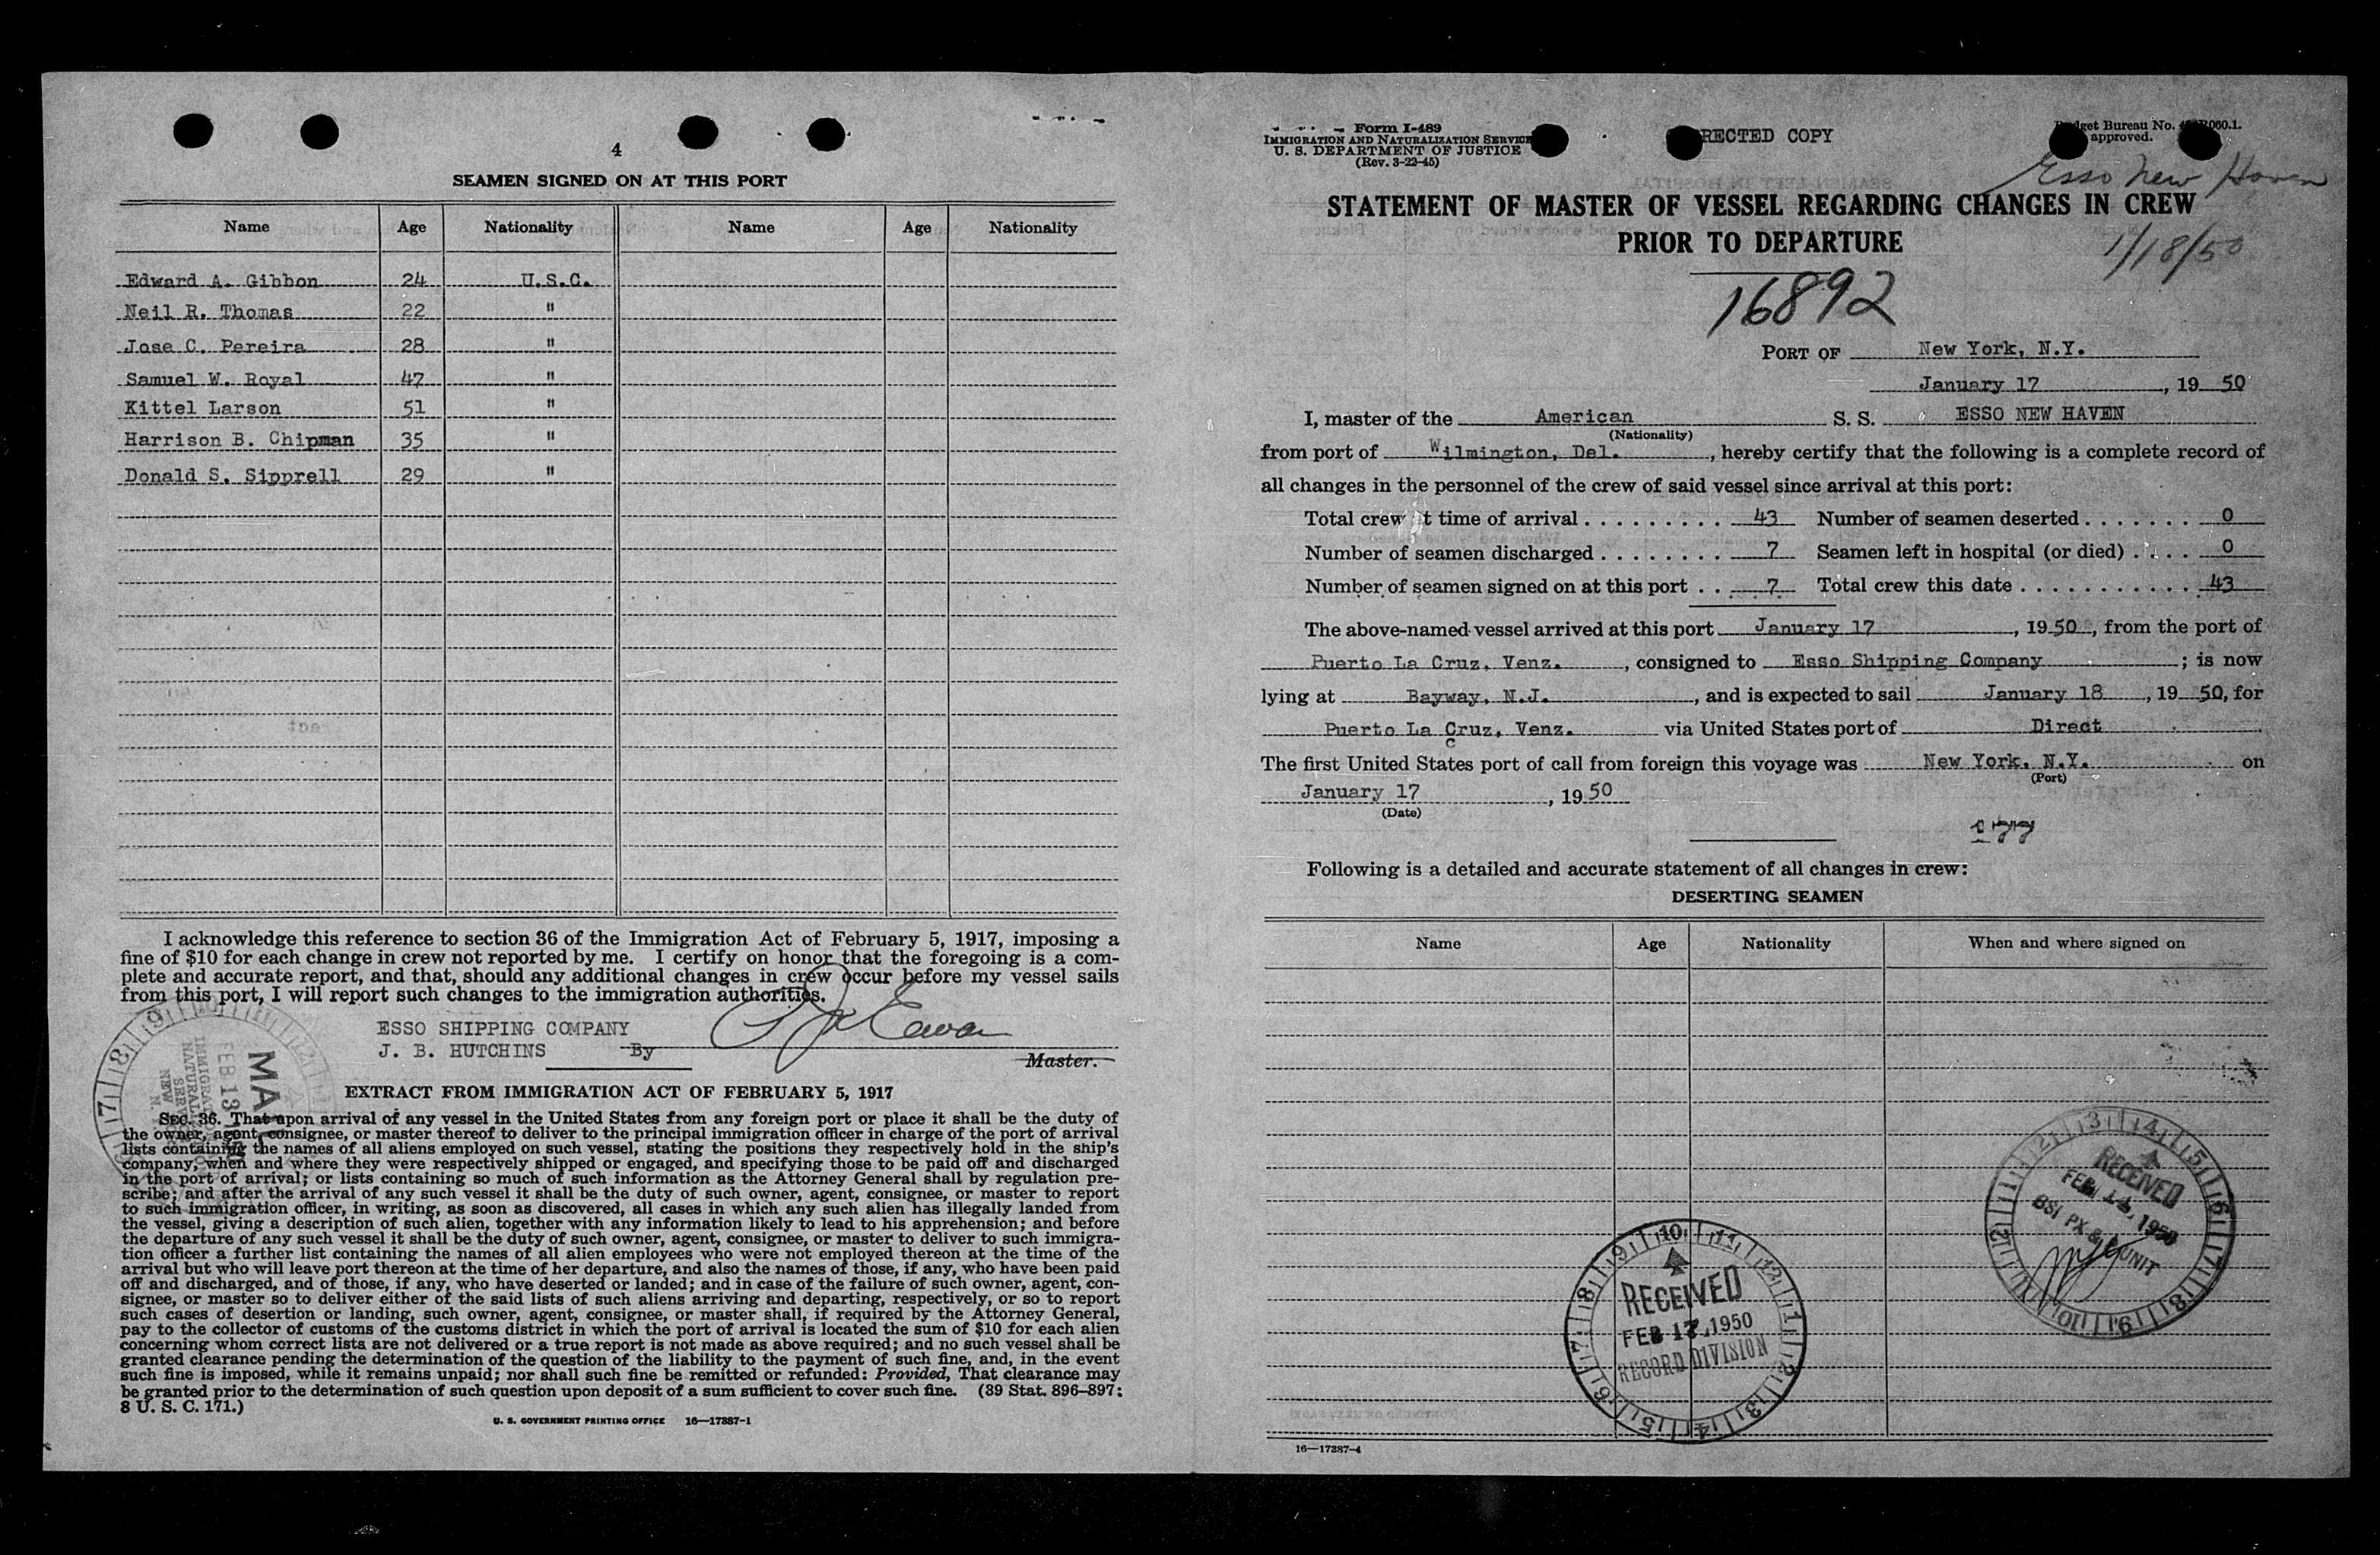 4
SEAMEN SIGNED ON AT THIS PORT
Name Age Nationality Name Age Nationality
Edward A. Gibbon 24 U.S.C.
Neil R. Thomas 22 "
Jose C. Pereira 28 "
Samuel W. Royal 47 "
Kittel Larson 51 "
Harrison B. Chipman 35 "
Donald S. Sipprell 29 "
I acknowledge this reference to section 36 of the Immigration Act of February 5, 1917, imposing a
fine of $10 for each change in crew not reported by me. I certify on honor that the foregoing is a com-
plete and accurate report, and that, should any additional changes in crew occur before my vessel sails
from this port, I will report such changes to the immigration authorities.
ESSO SHIPPING COMPANY
J. B. HUTCHINS By
Master.
EXTRACT FROM IMMIGRATION ACT OF FEBRUARY 5, 1917
SEC. 36. That upon arrival of any vessel in the United States from any foreign port or place it shall be the duty of
the owner, agent, consignee, or master thereof to deliver to the principal immigration officer in charge of the port of arrival
lists containing the names of all aliens employed on such vessel, stating the positions they respectively hold in the ship's
company, when and where they were respectively shipped or engaged, and specifying those to be paid off and discharged
in the port of arrival; or lists containing so much of such information as the Attorney General shall by regulation pre-
scribe; and after the arrival of any such vessel it shall be the duty of such owner, agent, consignee, or master to report
to such immigration officer, in writing, as soon as discovered, all cases in which any such alien has illegally landed from
the vessel, giving a description of such alien, together with any information likely to lead to his apprehension; and before
the departure of any such vessel it shall be the duty of such owner, agent, consignee, or master to deliver to such immigra-
tion officer a further list containing the names of all alien employees who were not employed thereon at the time of the
arrival but who will leave port thereon at the time of her departure, and also the names of those, if any, who have been paid
off and discharged, and of those, if any, who have deserted or landed; and in case of the failure of such owner, agent, con-
signee, or master so to deliver either of the said lists of such aliens arriving and departing, respectively, or so to report
such cases of desertion or landing, such owner, agent, consignee, or master shall, if required by the Attorney General,
pay to the collector of customs of the customs district in which the port of arrival is located the sum of $10 for each alien
concerning whom correct lists are not delivered or a true report is not made as above required; and no such vessel shall be
granted clearance pending the determination of the question of the liability to the payment of such fine, and, in the event
such fine is imposed, while it remains unpaid; nor shall such fine be remitted or refunded: Provided, That clearance may
be granted prior to the determination of such question upon deposit of a sum sufficient to cover such fine. (39 Stat. 896–897;
8 U. S. C. 171.)
U. S. GOVERNMENT PRINTING OFFICE 16—17387-1
Form I-489
IMMIGRATION AND NATURALIZATION SERVICE
U. S. DEPARTMENT OF JUSTICE
(Rev. 3-22-45)
RECTED COPY
get Bureau No. 060.1.
approved.
Esso New Haven
STATEMENT OF MASTER OF VESSEL REGARDING CHANGES IN CREW
PRIOR TO DEPARTURE
1/18/50
16892
PORT OF New York, N.Y.
January 17, 19 50
I, master of the American S. S. ESSO NEW HAVEN
(Nationality)
from port of Wilmington, Del., hereby certify that the following is a complete record of
all changes in the personnel of the crew of said vessel since arrival at this port:
Total crew t time of arrival . . . . . . . . . 43 Number of seamen deserted . . . . . . . 0
Number of seamen discharged . . . . . . . . 7 Seamen left in hospital (or died) . . . . 0
Number of seamen signed on at this port . . 7 Total crew this date . . . . . . . . . . . . 43
The above-named vessel arrived at this port January 17, 19 50, from the port of
Puerto La Cruz, Venz., consigned to Esso Shipping Company; is now
lying at Bayway, N.J., and is expected to sail January 18, 19 50, for
Puerto La Cruz, Venz. via United States port of Direct
The first United States port of call from foreign this voyage was New York, N.Y. on
(Port)
January 17, 19 50
(Date)
177
Following is a detailed and accurate statement of all changes in crew:
DESERTING SEAMEN
Name Age Nationality When and where signed on
RECEIVED
FEB 14 1950
BSI PX & UNIT
RECEIVED
FEB 17 1950
RECORD DIVISION
16—17387-4